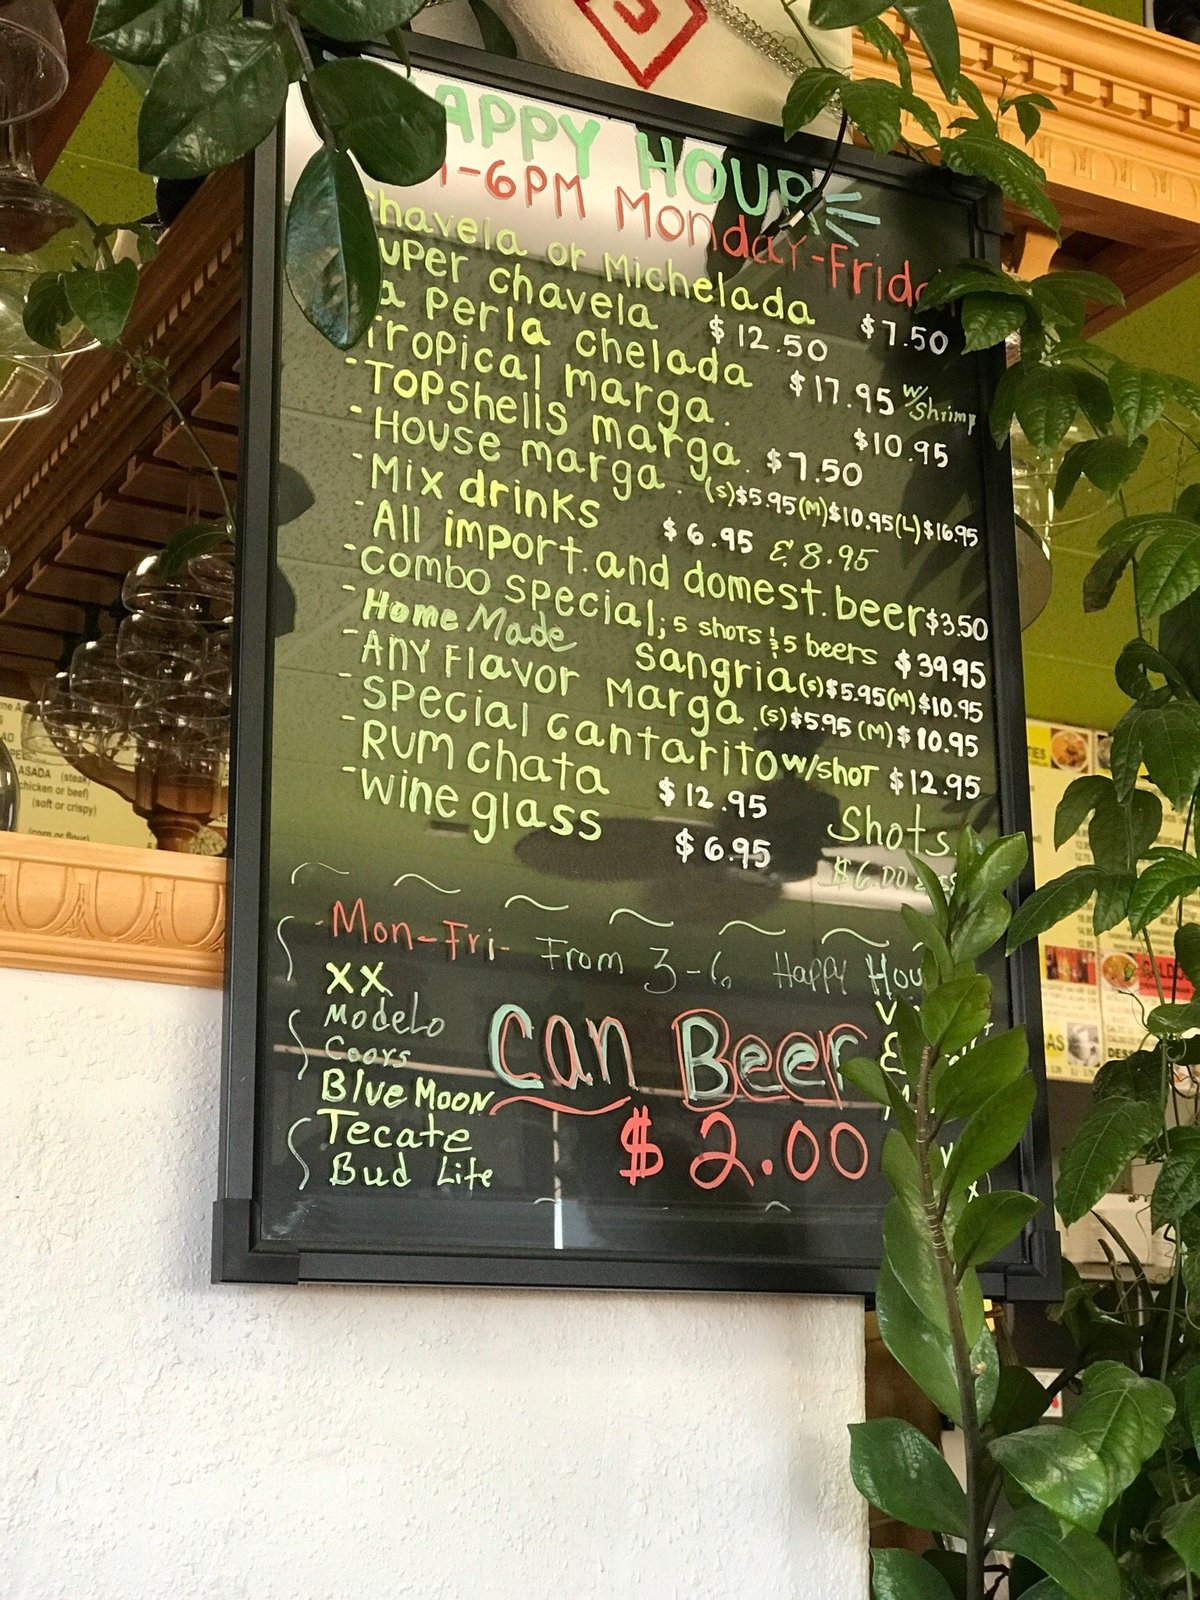 APPY HOUR
-6PM Monday-Frida
chavela or Michelada $7.50
uper chavela $12.50
a Perla chelada $17.95 w/shrimp
Tropical marga. $10.95
-Topshells marga. $7.50
-House marga. (s)$5.95(M)$10.95(L)$16.95
-Mix drinks $6.95 & 8.95
-All import. and domest. beer $3.50
-Combo special; 5 shots & 5 beers $39.95
-Home Made sangria (s)$5.95(M)$10.95
-Any Flavor Marga (s)$5.95 (M)$10.95
-Special cantarito w/shot $12.95
-Rum chata $12.95
-wine glass $6.95
Shots
$6.00
-Mon-Fri- From 3-6 Happy Hou
XX
Modelo
Coors
Blue Moon
Tecate
Bud Lite
Can Beer
$2.00
ASADA (steak
chicken or beef)
(soft or crispy)
(corn or flour)